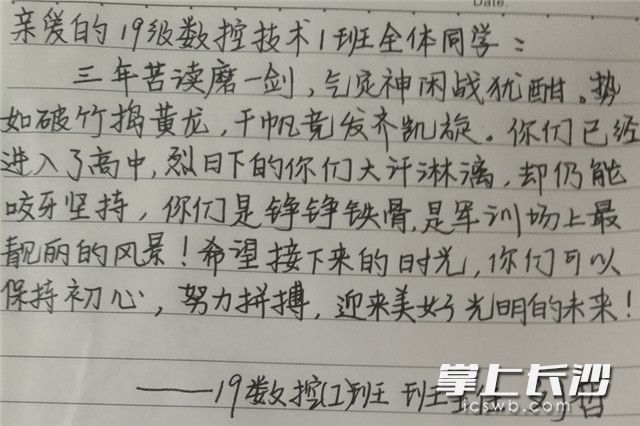 Date.
亲爱的19级数控技术1班全体同学：
三年苦读磨一剑，气定神闲战犹酣。势
如破竹捣黄龙，千帆竞发齐凯旋。你们已经
进入了高中，烈日下的你们大汗淋漓，却仍能
咬牙坚持，你们是铮铮铁骨，是军训场上最
靓丽的风景！希望接下来的时光，你们可以
保持初心，努力拼搏，迎来美好光明的未来！
——19数控(1)班 班主任
掌上长沙
icswb.com